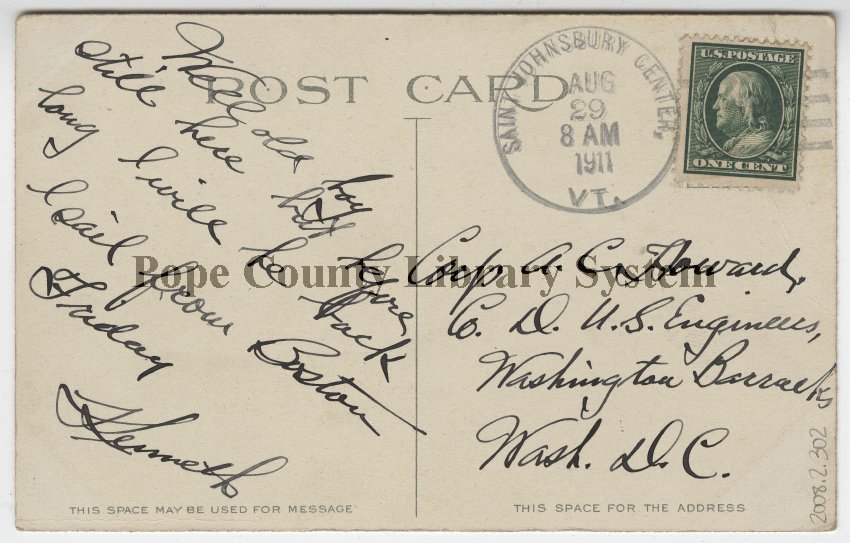 POST CARD
Well old boy
still here but before
long I will be back
I sail from Boston
Friday
Kenneth
THIS SPACE MAY BE USED FOR MESSAGE
SAINT JOHNSBURY CENTER,
AUG
29
8 AM
1911
VT.
U.S. POSTAGE
ONE CENT
Corp A. C. Howard,
Co. D. U.S. Engineers,
Washington Barracks
Wash. D.C.
THIS SPACE FOR THE ADDRESS
Pope County Library System
2008.2.302